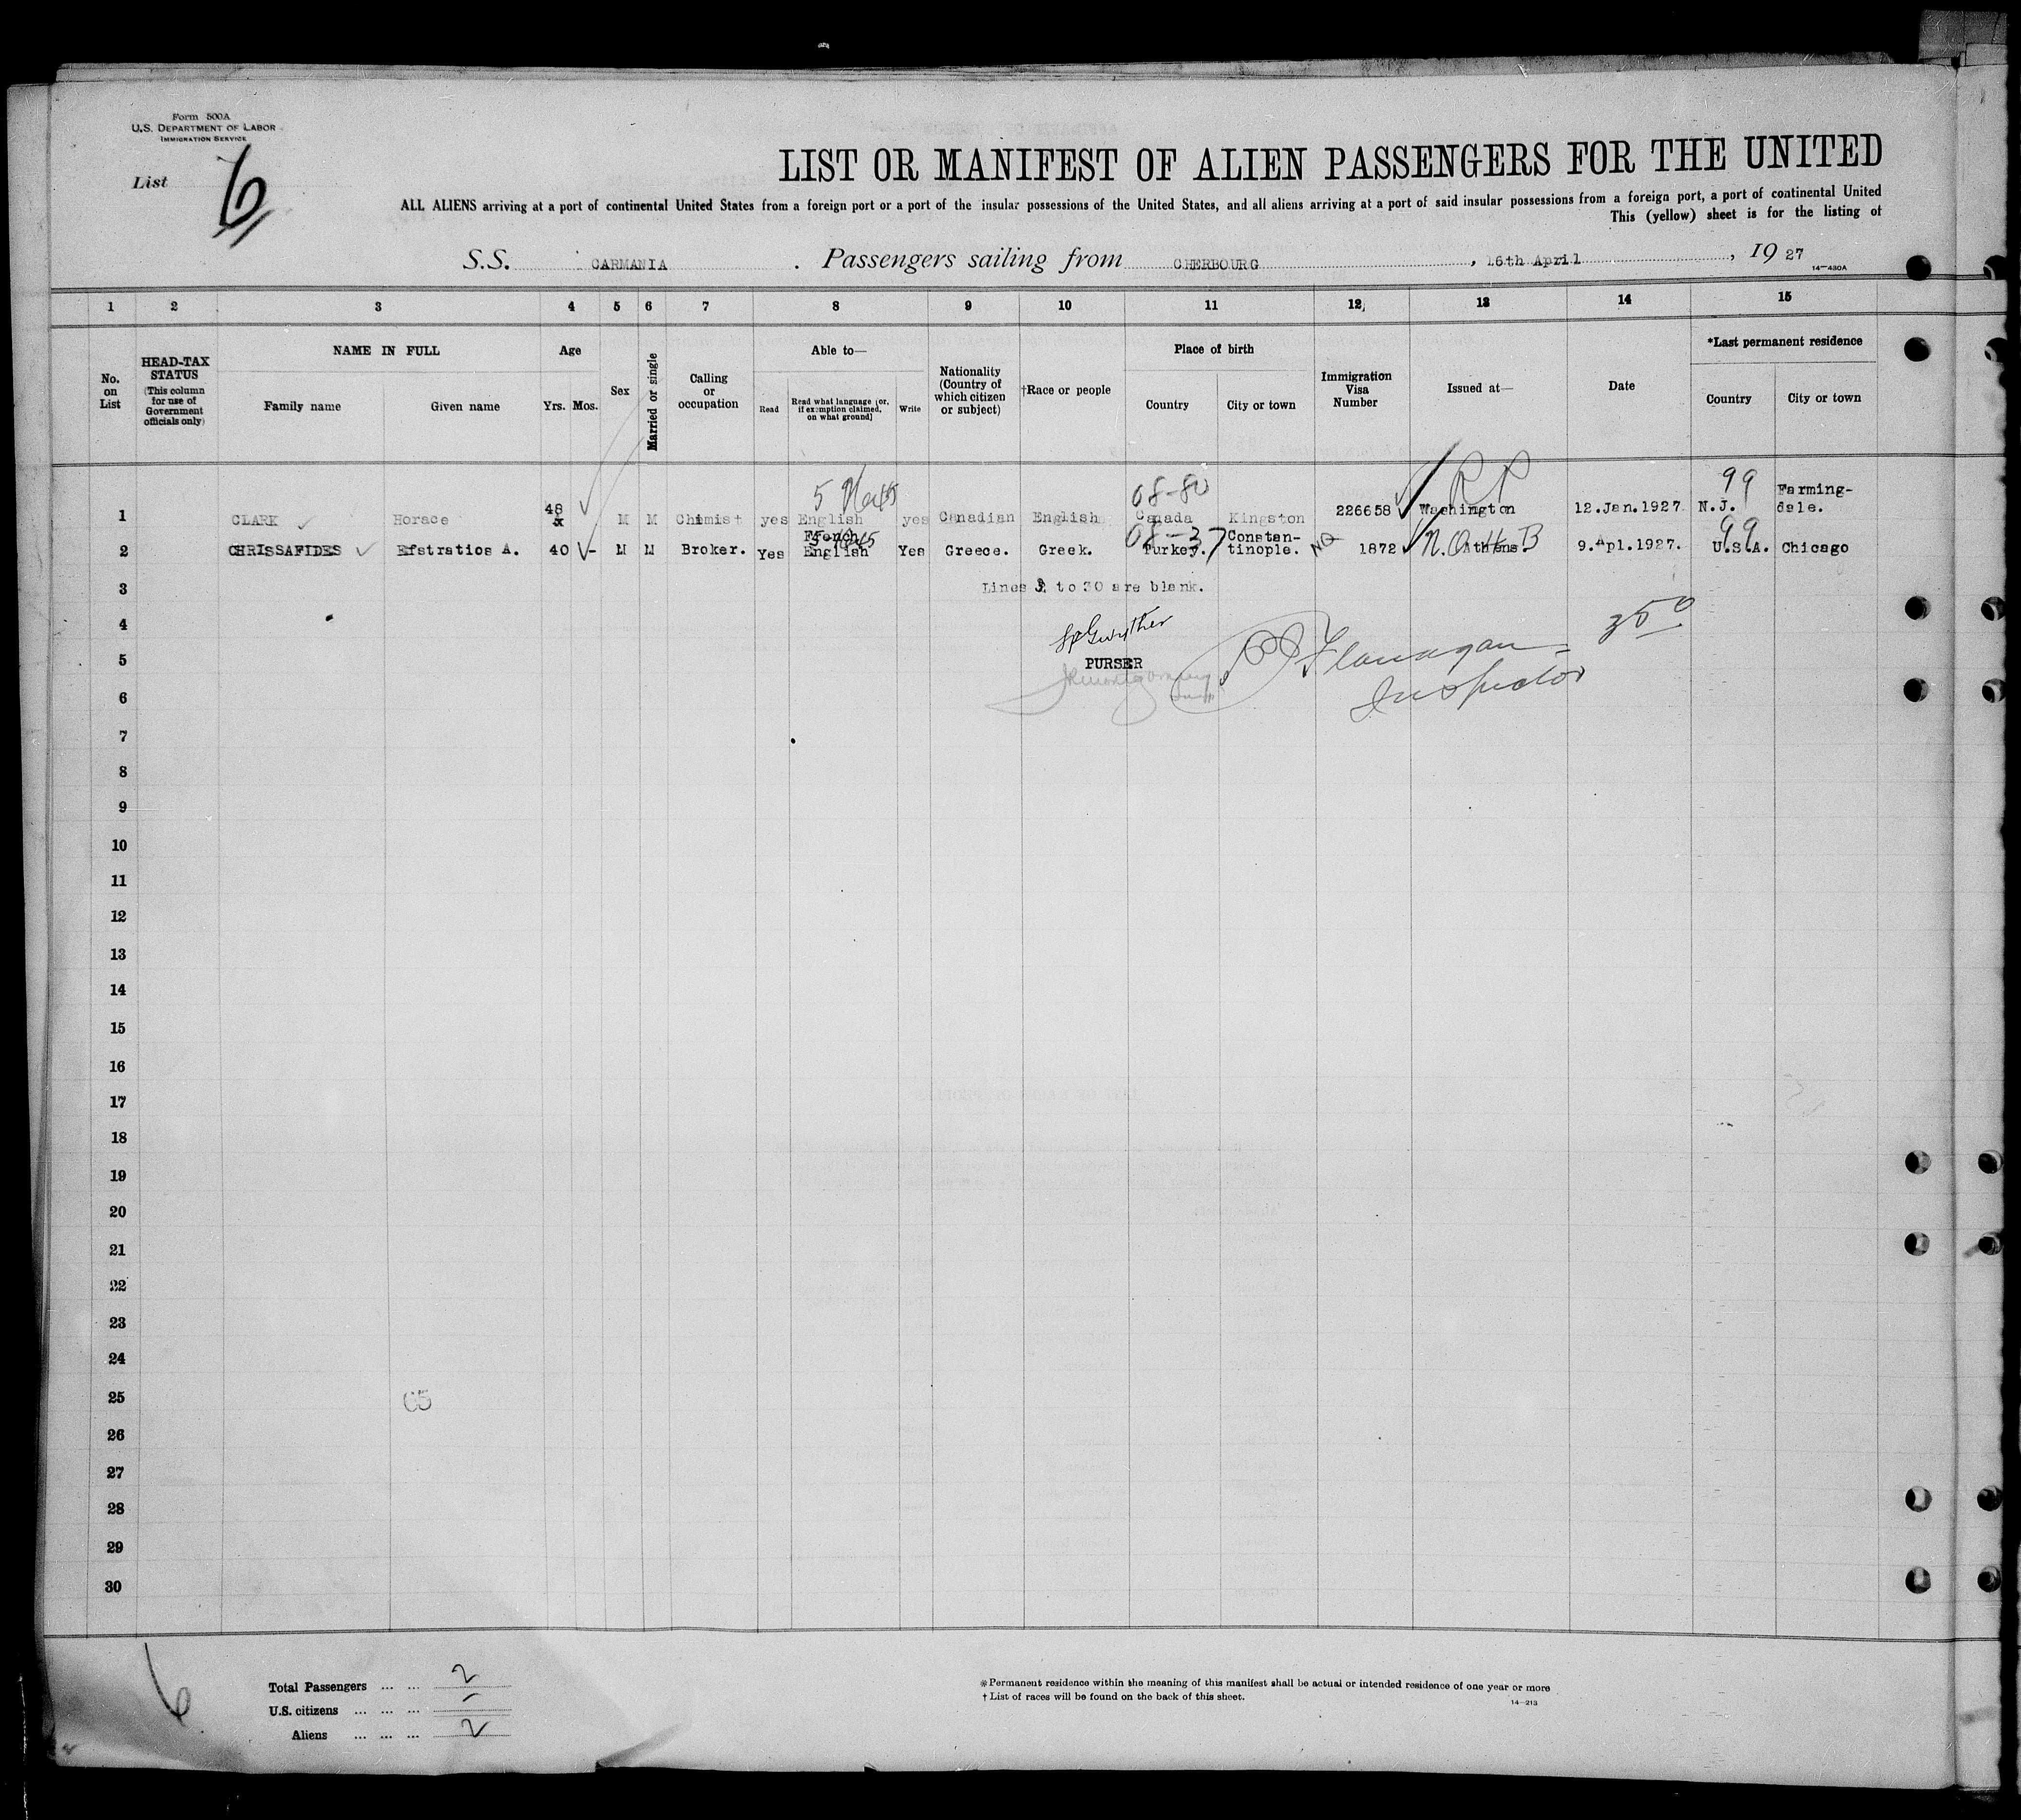 Form 500A
U.S. DEPARTMENT OF LABOR
IMMIGRATION SERVICE
List 6
LIST OR MANIFEST OF ALIEN PASSENGERS FOR THE UNITED
ALL ALIENS arriving at a port of continental United States from a foreign port or a port of the insular possessions of the United States, and all aliens arriving at a port of said insular possessions from a foreign port, a port of continental United
This (yellow) sheet is for the listing of
S.S. CARMANIA . Passengers sailing from CHERBOURG , 16th April , 19 27
14—430A
1 2 3 4 5 6 7 8 9 10 11 12 13 14 15
No. on List
HEAD-TAX STATUS
(This column for use of Government officials only)
NAME IN FULL
Family name Given name
Age
Yrs. Mos.
Sex
Married or single
Calling or occupation
Able to—
Read
Read what language (or, if exemption claimed, on what ground)
Write
Nationality (Country of which citizen or subject)
†Race or people
Place of birth
Country City or town
Immigration Visa Number
Issued at—
Date
*Last permanent residence
Country City or town
1 CLARK Horace 48 M M Chemist yes English yes Canadian English 08-80 Canada Kingston 226658 Washington 12.Jan.1927 99 N.J. Farming-dale.
2 CHRISSAFIDES Efstratios A. 40 M M Broker. Yes French English Yes Greece. Greek. 08-37 Turkey. Constan-tinople. NQ 1872 Athens. 9.Apl.1927. 99 U.S.A. Chicago
3 Lines 3 to 30 are blank.
4
5 PURSER Flanagan 350
6 Inspector
7
8
9
10
11
12
13
14
15
16
17
18
19
20
21
22
23
24
25 C5
26
27
28
29
30
6
Total Passengers ... ... 2
U.S. citizens ... ... ... –
Aliens ... ... ... 2
*Permanent residence within the meaning of this manifest shall be actual or intended residence of one year or more
† List of races will be found on the back of this sheet.
14—213